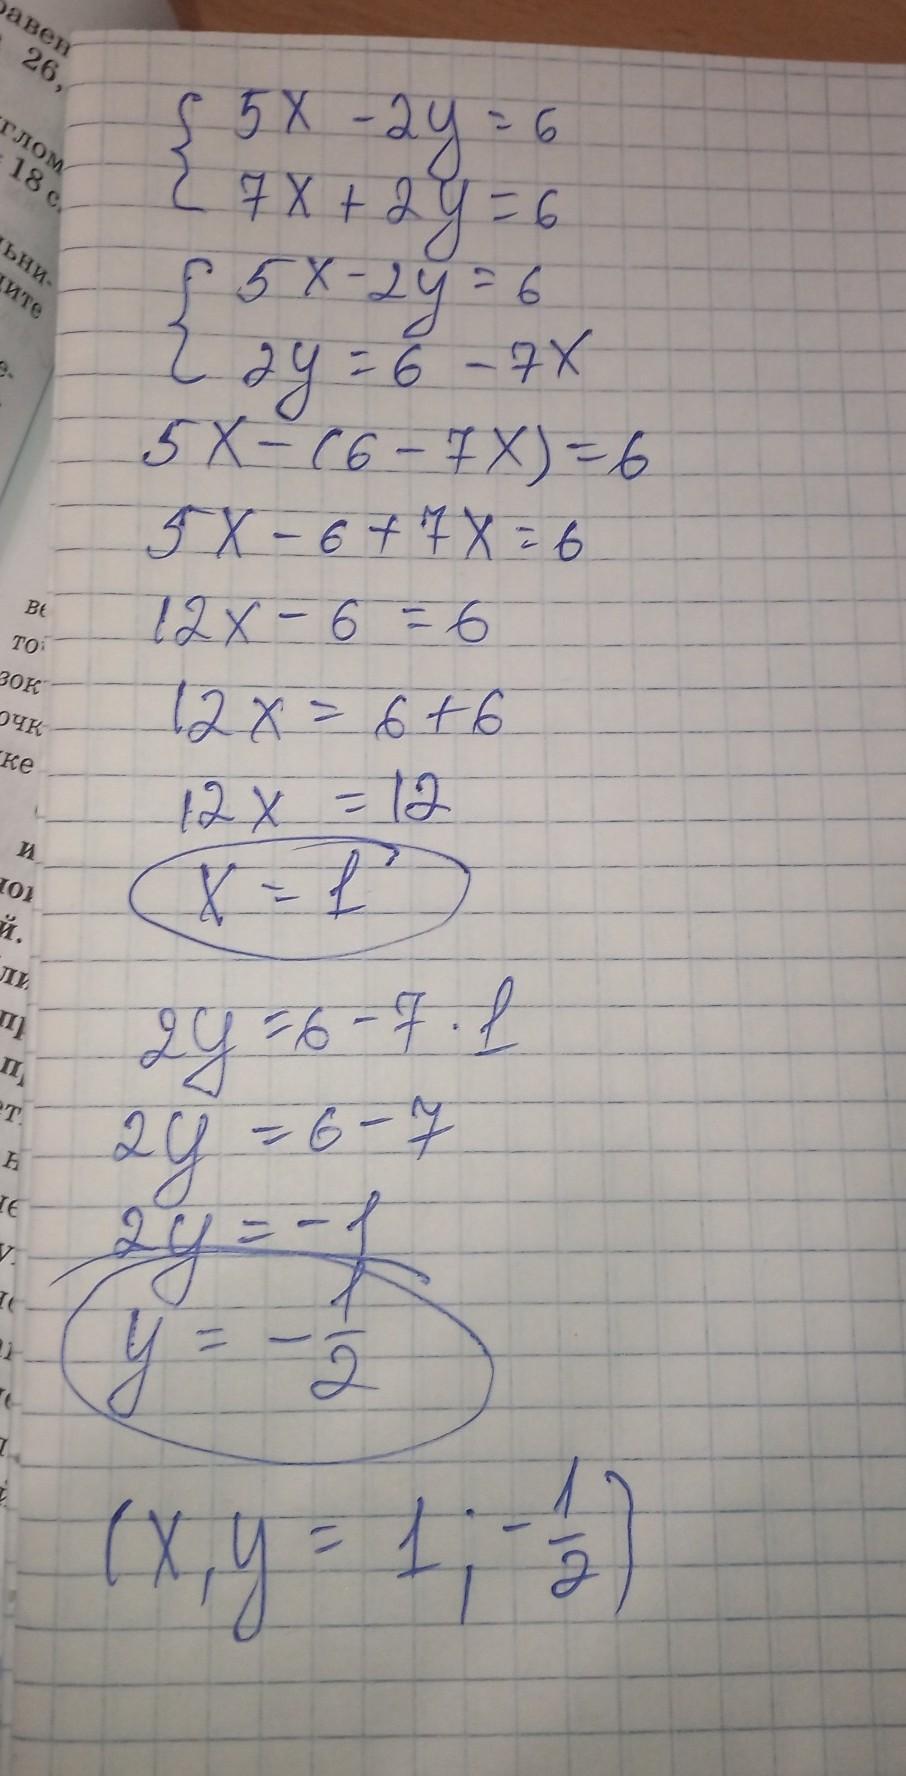 равен
26,
глом
18 с.
ните
то
зок
очк
ке
и
й.
ли
пр
ет.
н
5x - 2y = 6
7x + 2y = 6
5x - 2y = 6
2y = 6 - 7x
5x - (6 - 7x) = 6
5x - 6 + 7x = 6
12x - 6 = 6
12x = 6 + 6
12x = 12
x = 1
2y = 6 - 7 · 1
2y = 6 - 7
2y = -1
y = - 1/2
(x, y = 1; - 1/2)